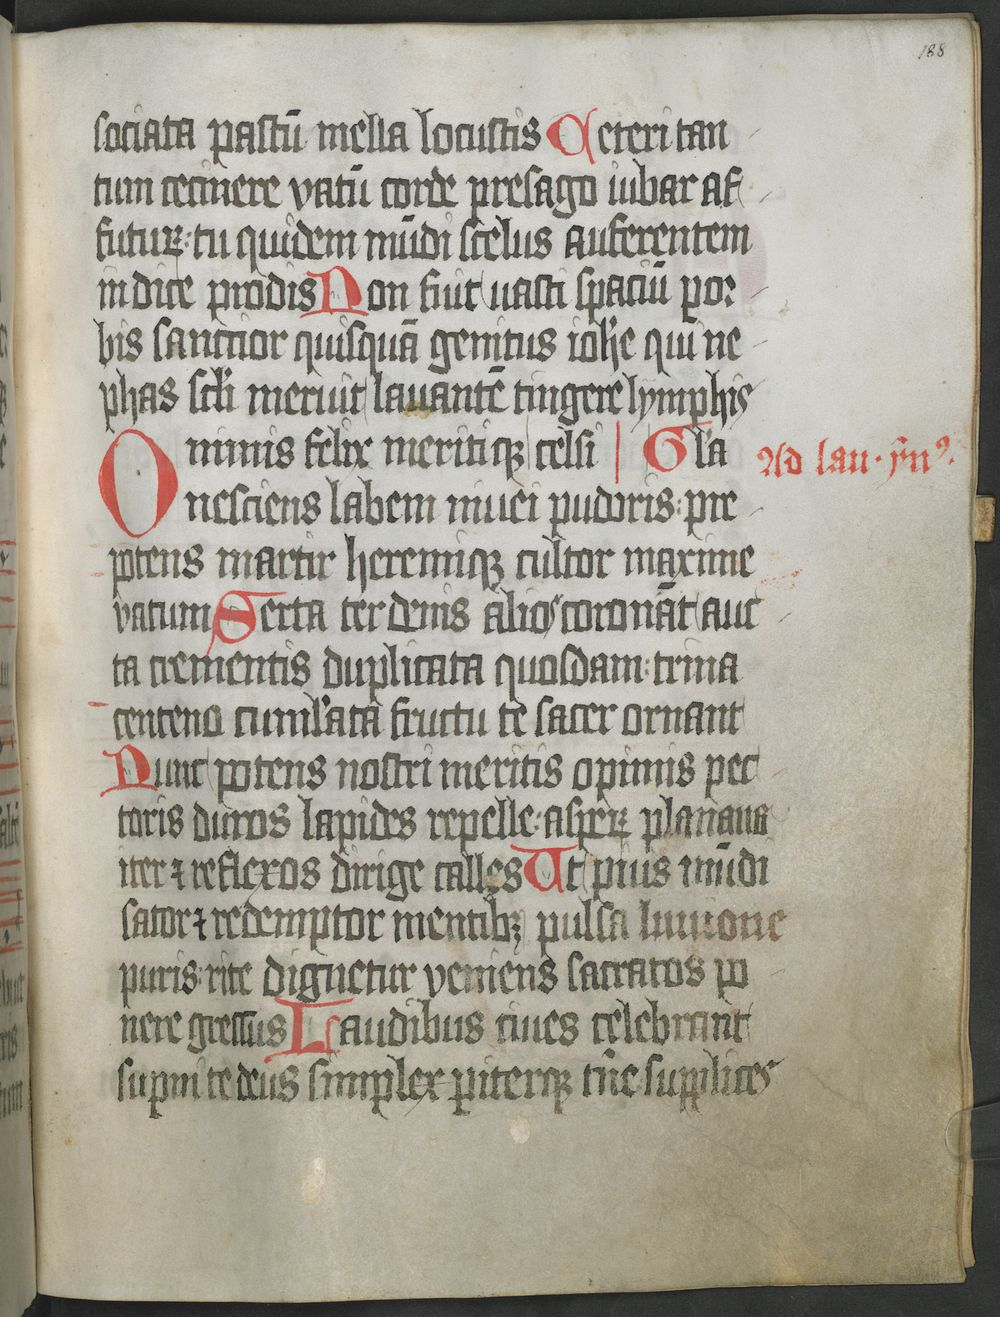 188
sociata pastū mella locustis Ceteri tan
tum cecinere vatū corde presago iubar af
futurꝝ: tu quidem mūdi scelus auferentem
indice prodis Non fuit vasti spaciū por
bis sanctior quisquā genitus ioh̄e qui ne
phas scl̄i meruit lauantē tingere lymphis
O nimis felix meritiqꝫ celsi Gl̄a
Ad lau. ym̄9.
nesciens labem niuei pudoris: pre
potens martir heremiqꝫ cultor maxime
vatum Serta ter denis alios coronāt auc
ta crementis duplicata quosdam: trina
centeno cumulata fructu te sacer ornant
Nunc potens nostri meritis opimis pec
toris duros lapides repelle: asperꝝ planans
iter ⁊ reflexos dirige calles Ut pius mūdi
sator ⁊ redemptor mentibꝫ pulsa liuione
puris: rite dignetur veniens sacratos po
nere gressus Laudibus ciues celebrant
sup̄ni te deus simplex pariterqꝫ trine supplices